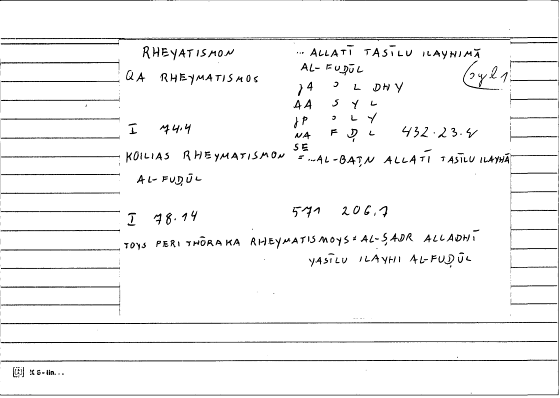 RHEYATISMON ... ALLATĪ TASĪLU ILAYHIMĀ
AL-FUḌŪL
QA RHEYMATISMOS
JA ʾ L DHY
AA S Y L
JP ʾ L Y
I 74.4 NA F Ḍ L 432.23.4
SE
KOILIAS RHEYMATISMON = ...AL-BAṬN ALLATĪ TASĪLU ILAYHĀ
AL-FUḌŪL
I 78.14 571 206.7
TOYS PERI THŌRAKA RHEYMATISMOYS = AL-ṢADR ALLADHĪ
YASĪLU ILAYHI AL-FUḌŪL